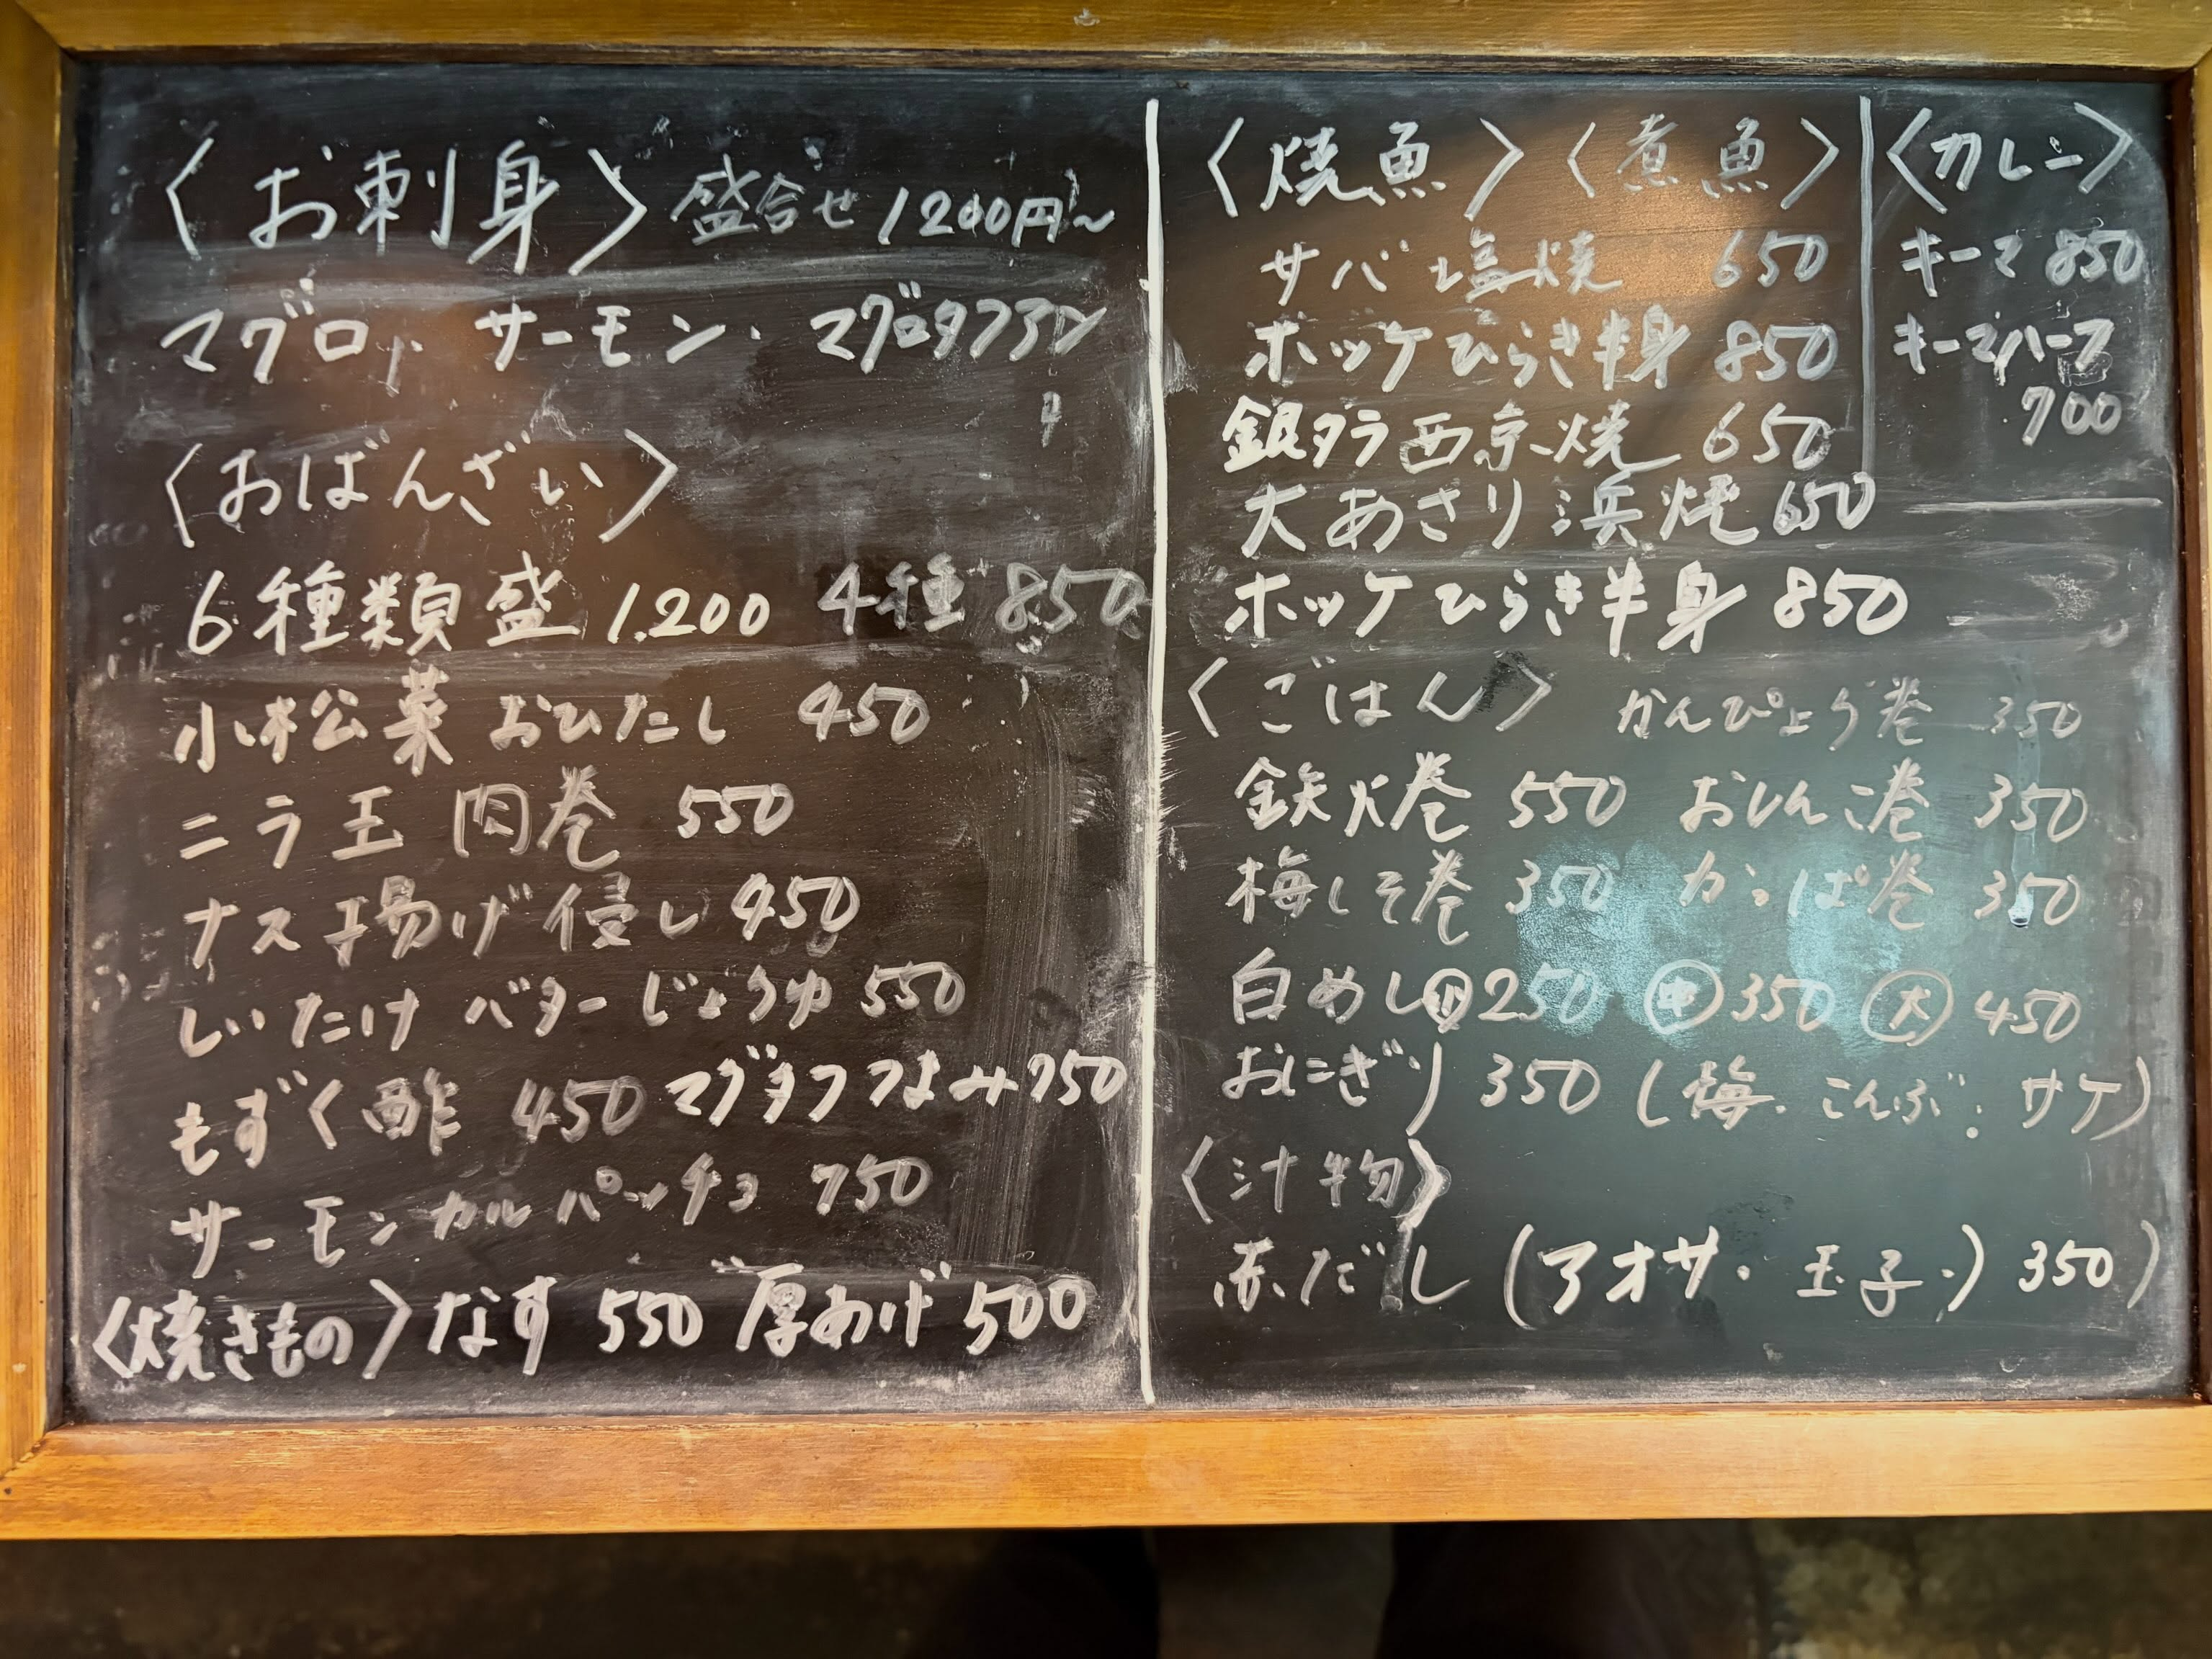 〈お刺身〉盛合せ 1200円〜
マグロ、サーモン・マグロタタヨン
〈おばんざい〉
6種類盛 1.200 4種 850
小松菜おひたし 450
ニラ玉肉巻 550
ナス揚げ侵し 450
しいたけバターじょうゆ 550
もずく酢 450 マグタフつまみ 750
サーモンカルパッチョ 750
〈焼きもの〉なす 550 厚あげ 500
〈焼魚〉〈煮魚〉
サバ塩焼 650
ホッケひらき半身 850
銀タラ西京焼 650
大あさり浜焼 650
ホッケひらき半身 850
〈カレー〉
キーマ 850
キーマハーフ
700
〈ごはん〉 かんぴょう巻 350
鉄火巻 550 おしんこ巻 350
梅しそ巻 350 かっぱ巻 350
白めし㊙250 ㊥350 大 450
おにぎり 350 (梅・こんぶ・サケ)
〈汁物〉
赤だし (アオサ・玉子・) 350)